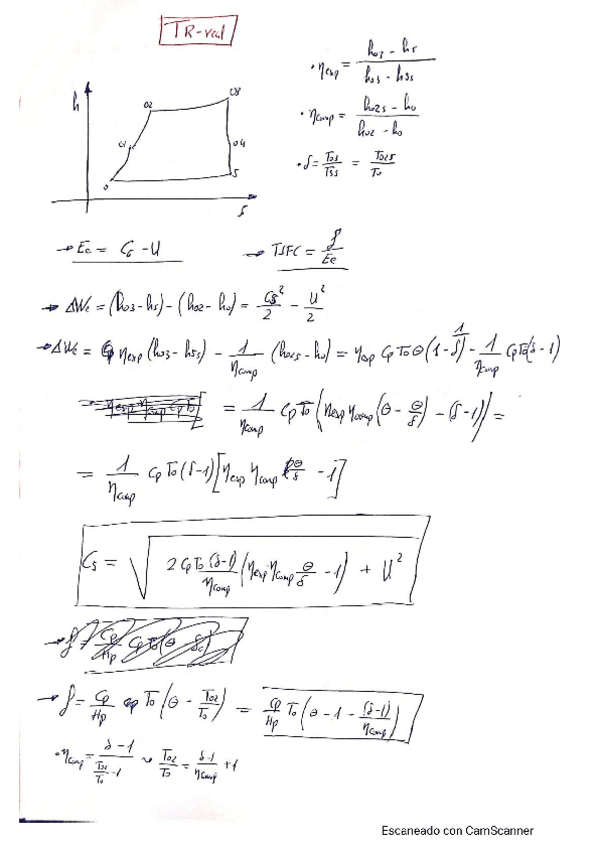 TR-real
· η_exp = (h03 - h5) / (h03 - h5s)
· η_comp = (h02s - h0) / (h02 - h0)
· δ = T03/T5s = T02s/T0
h
02
03
01
04
0
5
s
→ Ee = C5 - U → TSFC = f/Ee
→ ΔWe = (h03 - h5) - (h02 - h0) = C5²/2 - U²/2
→ ΔWe = η_exp (h03 - h5s) - 1/η_comp (h02s - h0) = η_exp Cp T0 θ (1 - 1/δ) - 1/η_comp Cp T0 (δ - 1)
= 1/η_comp Cp T0 (η_exp η_comp (θ - θ/δ) - (δ - 1)) =
= 1/η_comp Cp T0 (δ - 1) [η_exp η_comp θ/δ - 1]
C5 = √(2 Cp T0 (δ-1)/η_comp (η_exp η_comp θ/δ - 1) + U²)
→ f = Cp/Hp T0 (θ - T02/T0) = Cp/Hp T0 (θ - 1 - (δ-1)/η_comp)
· η_comp = (δ - 1)/(T02/T0 - 1) ↝ T02/T0 = (δ-1)/η_comp + 1
Escaneado con CamScanner